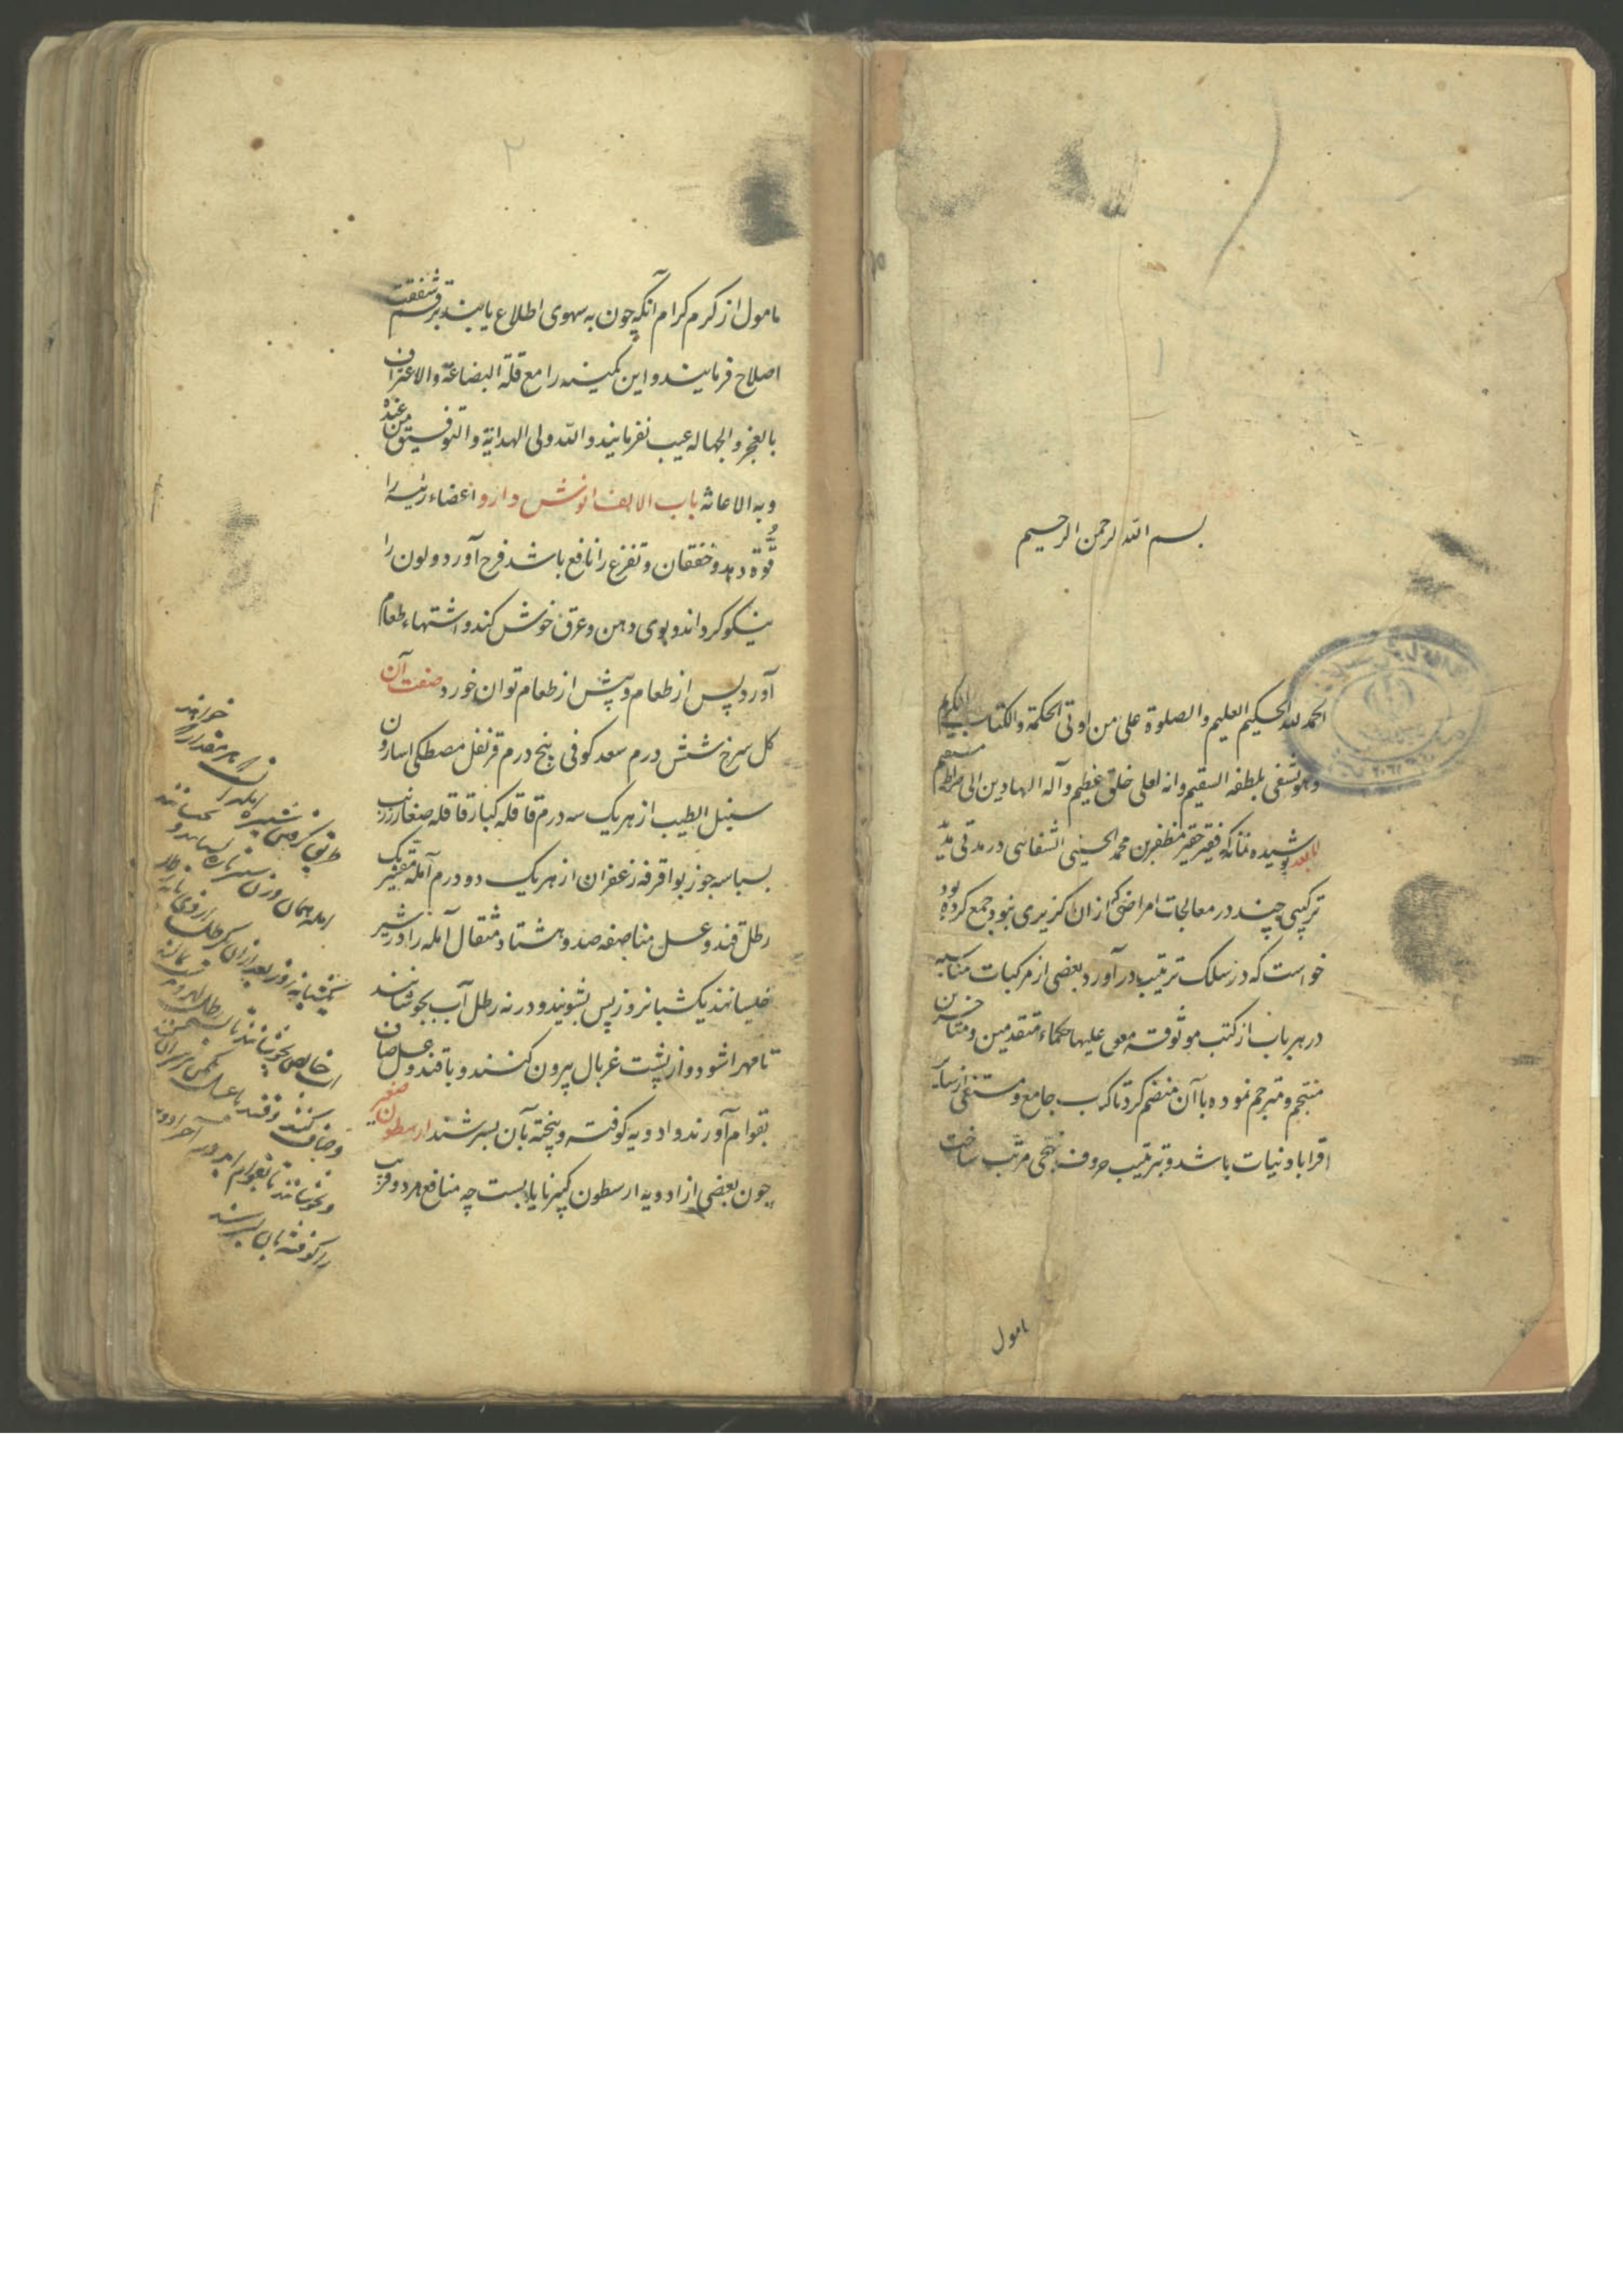 بسم الله الرحمن الرحیم
الحمد لله الحکیم العلیم والصلوة علی من اوتی الحکمة والکتاب الکریم
وهو یشفی بلطفه السقیم وانه لعلی خلق عظیم وآله الهادین الی صراط مستقیم
اما بعد پوشیده نماند که فقیر حقیر مظفر بن محمد الحسینی الشفائی در مدتی مدید
ترکیبی چند در معالجات امراضی که از ان کزیری نبود جمع کرده بود
خواست که در سلک ترتیب در آورد بعضی از مرکبات مناسبه
در هر باب از کتب موثوقه معول علیها حکماء متقدمین ومتأخرین
منتخب ومترجم نموده با آن منضم کرد تا کتاب جامع ومستغنی از سایر
اقرابادینات باشد وبترتیب حروف تهجی مرتب ساخت
مامول
۱
۲
مامول از کرم کرام آنکه چون به سهوی اطلاع یابند برقم شفقت
اصلاح فرمایند و این کمینه را مع قلة البضاعة والاعتراف
بالعجز والجهاله عیب نفرمایند والله ولی الهدایة والتوفیق من عنده
وبه الاعانه باب الالف انوش دارو اعضاء رئیسه را
قوة دهد و خفقان و تفزع را نافع باشد فرح آورد و لون را
نیکو کرداند و بوی دهن و عرق خوش کند و اشتهاء طعام
آورد پس از طعام و پیش از طعام توان خورد صفت آن
کل سرخ شش درم سعد کوفی پنج درم قرنفل مصطکی اسارون
سنبل الطیب از هریک سه درم قاقله کبار قاقله صغار زرنب
بسباسه جوز بوا قرفه زعفران از هریک دو درم آمله مقشر یک
رطل قند و عسل مناصفه صد و هشتاد مثقال آمله را در شیر
خیسانند یک شبانروز پس بشویند و در نه رطل آب بجوشانند
تا مهرا شود و از پشت غربال بیرون کنند و با قند و عسل صاف
بقوام آورند و ادویه کوفته و بیخته بآن بسرشند ارسطون صغیر
چون بعضی از ادویه ارسطون کبیر نایابست چه منافع هر دو قریب
خالص بجوشانند تا
وصاف کنند وقند با عسل
وبجوشانند تا بقوام آید و در آخر ادویه
را کوفته بان بسرشند